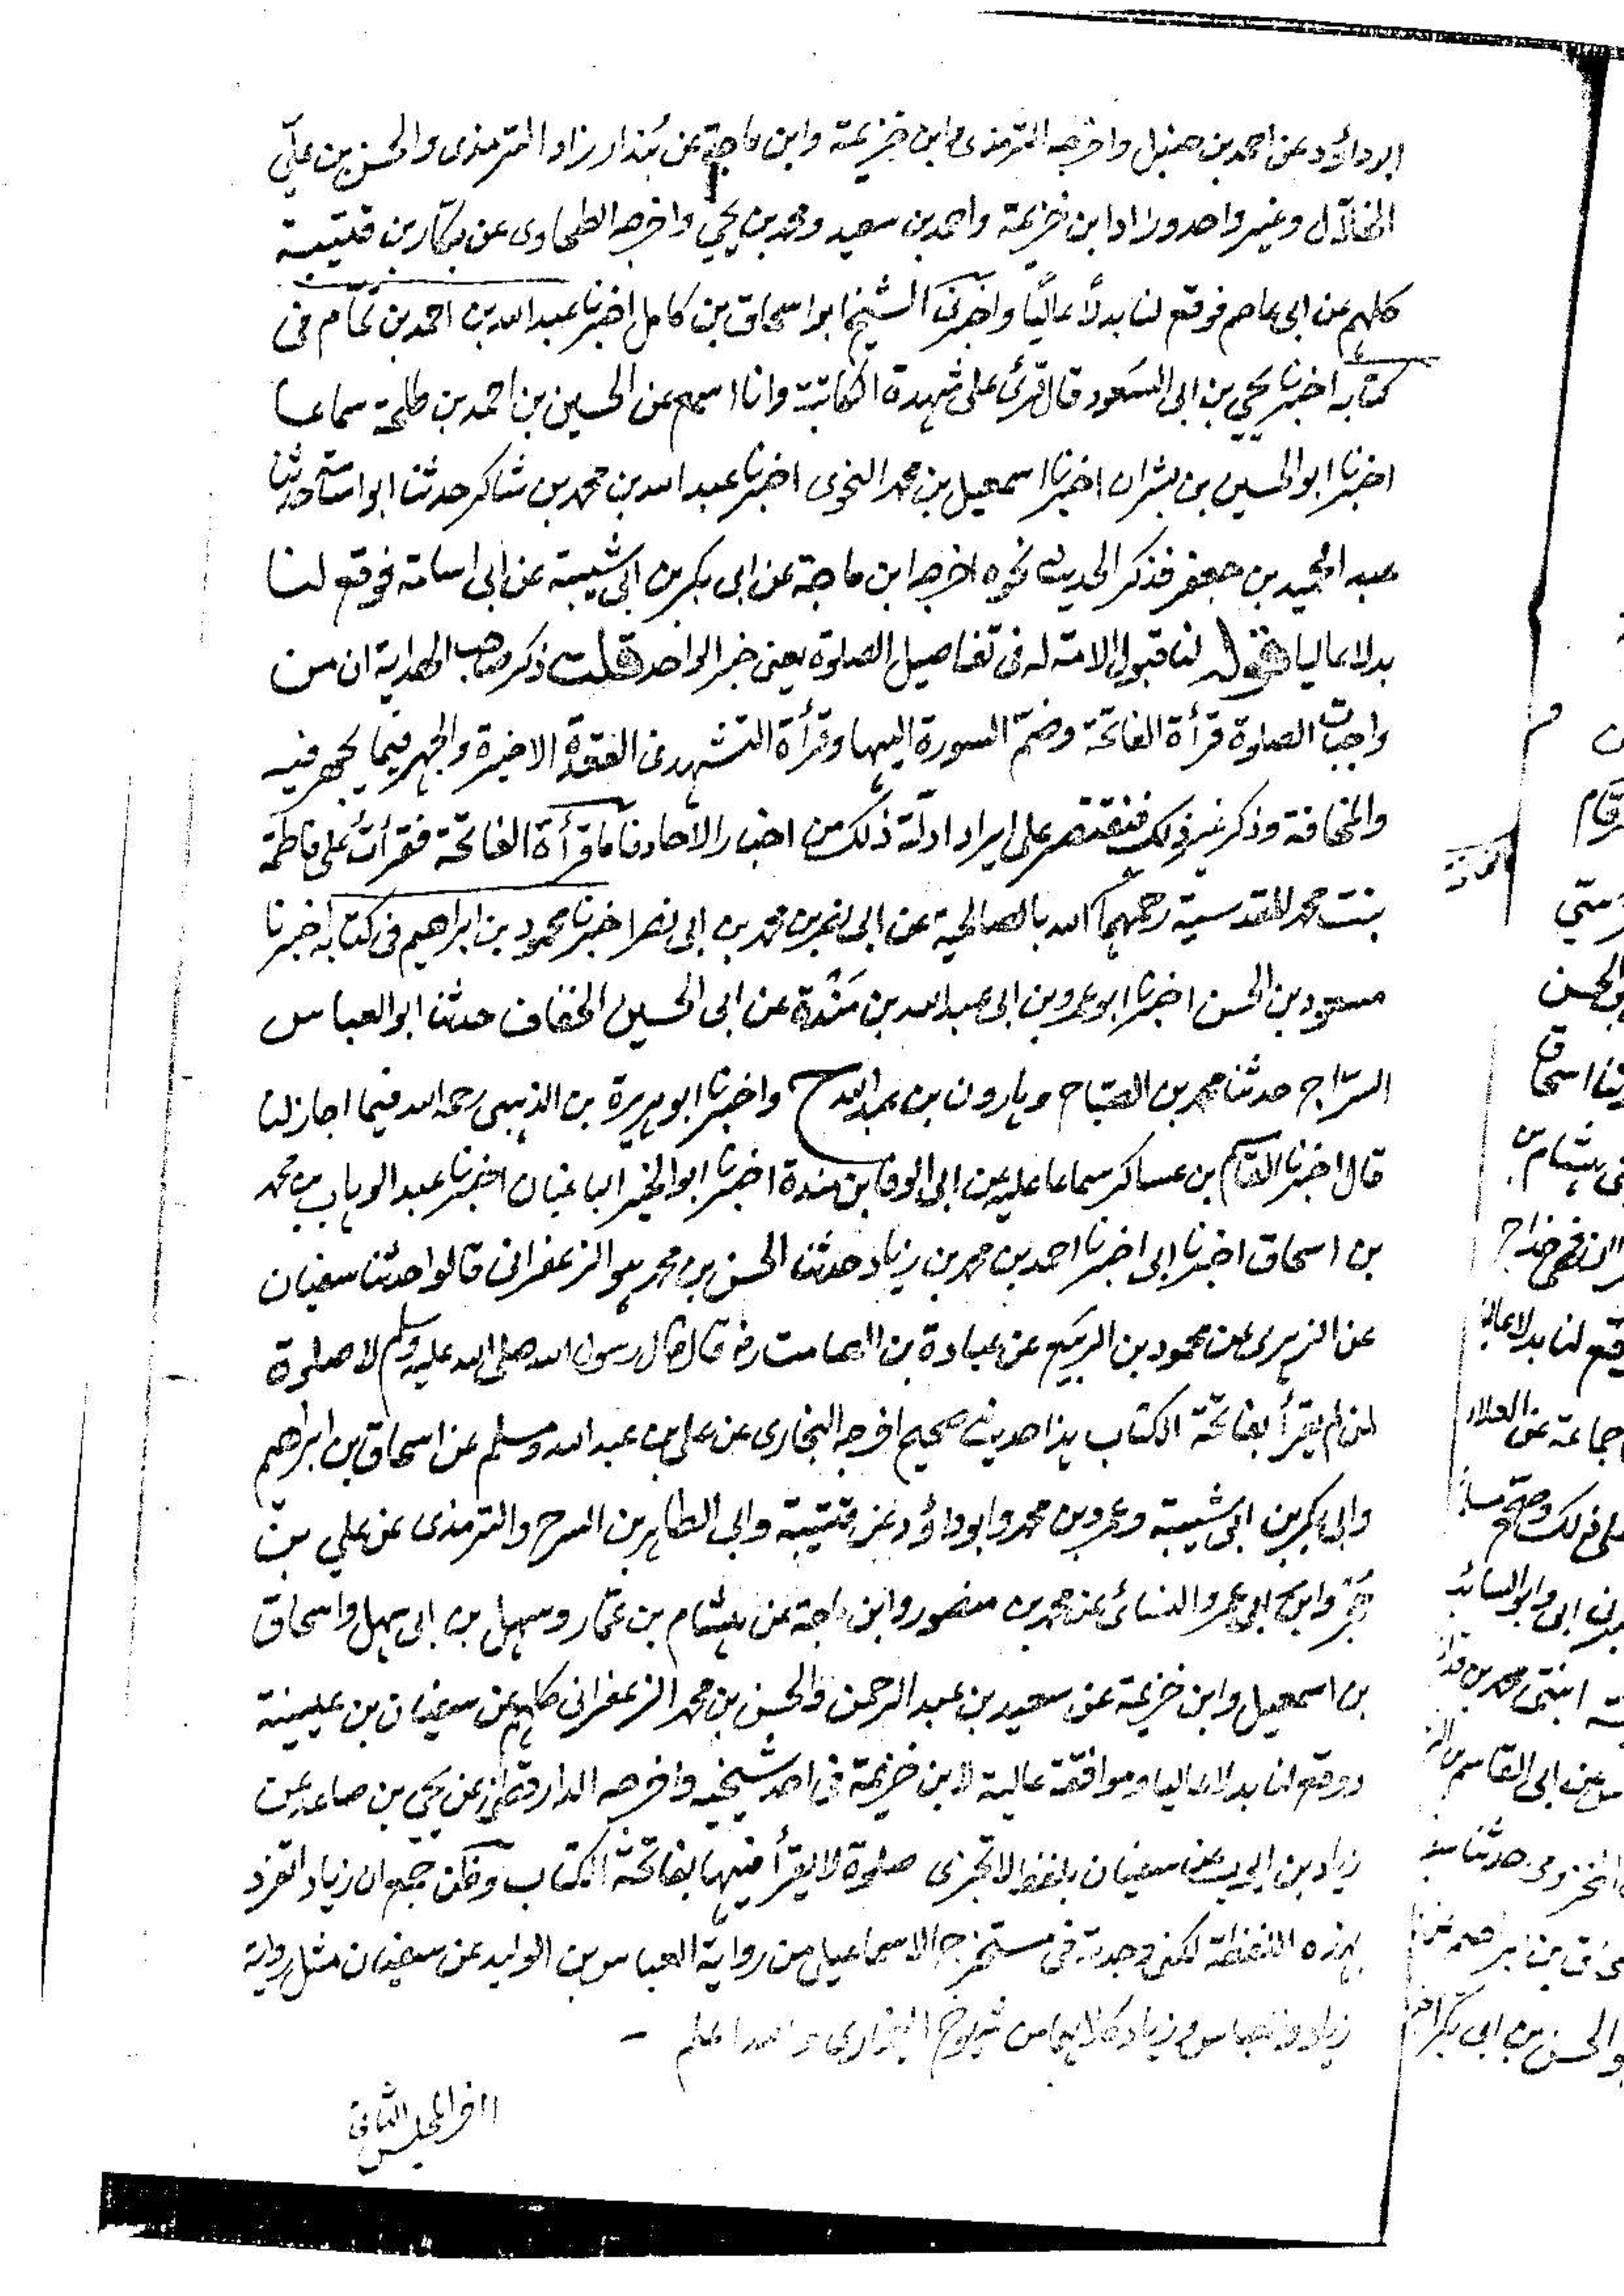 ابو داؤد عن احمد بن حنبل واخرجه الترمذى وابن خزيمة وابن ماجة عن بُندار زاد الترمذى والحسن بن علىّ
الخلّال وغير واحد وزاد ابن خزيمة واحمد بن سعيد ومحمد بن يحيى واخرجه الطحاوى عن بكّار بن قتيبة
كلهم عن ابى عاصم فوقع لنا بدلاً عاليًا واخبرنى الشيخ ابو اسحاق بن كامل اخبرنا عبد الله بن احمد بن تمّام فى
كتابه اخبرنا يحيى بن ابى السَعود قال قرئ على شهدة الكاتبة وانا اسمع عن الحسين بن احمد بن طلحة سماعا
اخبرنا ابو الحسين بن بشران اخبرنا اسمعيل بن محمد النحوى اخبرنا عبد الله بن محمد بن شاكر حدثنا ابو اسامة حدثنا
عبد الحميد بن جعفر فذكر الحديث نحوه اخرجه ابن ماجة عن ابى بكر بن ابى شيبة عن ابى اسامة فوقع لنا
بدلا عاليا قوله لنا قبول الامة له فى تفاصيل الصلوة يعنى خبر الواحد قلت ذكر صاحب الهداية ان من
واجبات الصلوة قرأة الفاتحة وضمّ السورة اليها وقرأة التشهد فى القعدة الاخيرة والجهر فيما يجهر فيه
والمخافتة وذكر غير ذلك فنقتصر على ايراد ادلّة ذلك من اخبار الآحاد فاما قرأة الفاتحة فقرأتُ على فاطمة
بنت محمد المقدسية رحمهما الله بالصالحية عن ابى نصر بن محمد بن ابى نصر اخبرنا محمود بن ابراهيم فى كتابه اخبرنا
مسعود بن الحسن اخبرنا ابو عمرو بن ابى عبد الله بن مَنْدة عن ابى الحسين الخفاف حدثنا ابو العباس
السرّاج حدثنا محمد بن الصّبّاح وهارون بن عبد الله ح واخبرنا ابو هريرة بن الذهبى رحمه الله فيما اجاز لنا
قال اخبرنا القاسم بن عساكر سماعا عليه عن ابى الوفا بن مندة اخبرنا ابو الخير الباغبان اخبرنا عبد الوهاب بن محمد
بن اسحاق اخبرنا ابى اخبرنا احمد بن محمد بن زياد حدثنا الحسن بن محمد هو الزعفرانى قالوا حدثنا سفيان
عن الزهرى عن محمود بن الربيع عن عبادة بن الصامت رض قال قال رسول الله صلى الله عليه وسلم لا صلوة
لمن لم يقرأ بفاتحة الكتاب هذا حديث صحيح اخرجه البخارى عن على بن عبد الله ومسلم عن اسحاق بن ابراهيم
وابى بكر بن ابى شيبة وعمرو بن محمد وابو داؤد عن قتيبة وابى الطاهر بن السرح والترمذى عن علي بن
حُجْر وابن ابى عمر والنسائى عن محمد بن منصور وابن ماجة عن هشام بن عمّار وسهل بن ابى سهل واسحاق
بن اسمعيل وابن خزيمة عن سعيد بن عبد الرحمن والحسن بن محمد الزعفرانى كلهم عن سفيان بن عيينة
ووقع لنا بدلا عاليا وموافقة عالية لابن خزيمة فى احد شيخيه واخرجه الدارقطنى عن يحيى بن صاعد عن
زياد بن ايوب عن سفيان بلفظ لا تجزى صلوة لا يقرأ فيها بفاتحة الكتاب وظن جمع ان زياد اتفرد
بهذه اللفظة لكنى وجدته فى مستخرج الاسماعيلى من رواية العباس بن الوليد عن سفيان مثل رواية
زياد والعباس وزياد كلاهما من شيوخ البخارى والله اعلم -
اخر المجلس الثانى
الحسن
هشام بن
جماعة عن العلاء
ابى القاسم
المخزومى حدثنا
والحسن بن ابى بكر